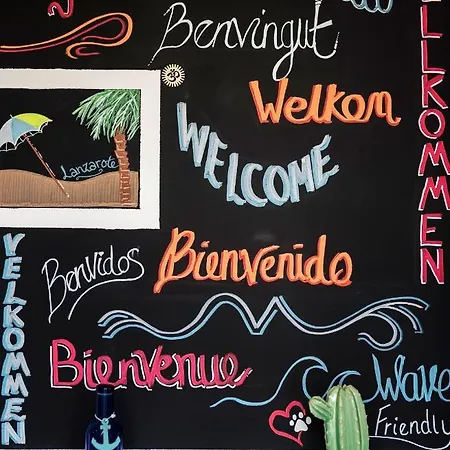 Benvingut
Welkom
WELCOME
Lanzarote
LLKOMMEN
Benvidos
Bienvenido
VELKOMMEN
Bienvenue
Wave
Friendly